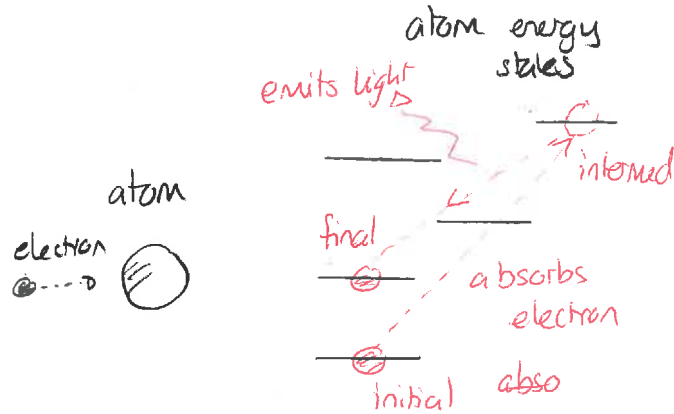 atom energy
states
emits light
intermed
atom
electron
final
absorbs
electron
initial
abso